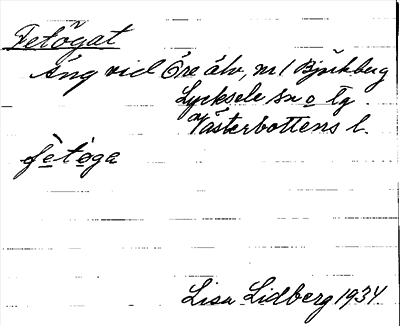 Fetögat
Äng vid Öre älv, m / Björkberg
Lycksele sn o Tg
Västerbottens l.
fètöga
Lisa Lidberg 1934